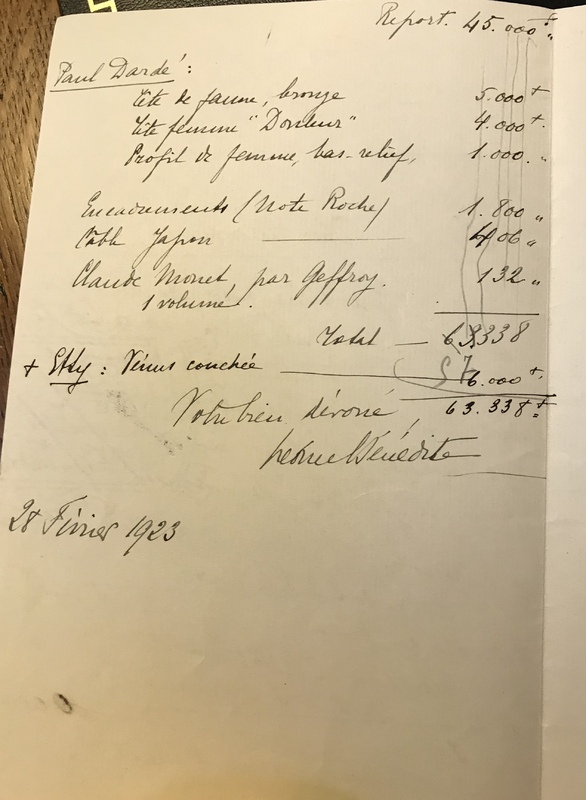 Report. 45.000 "
Paul Dardé :
tête de faune, bronze 5.000 +
tête femme "Douleur" 4.000 +
Profil de femme, bas-relief, 1.000. "
Encadrements (Note Roche) 1.800 "
Câble Japon — 406 "
Claude Monet, par Geffroy. 132 "
1 volume.
Total — 63338
57
+ Etty : Vénus couchée — 6.000 +
63.338 +
Votre bien dévoué,
Léonce Bénédite
28 Février 1923